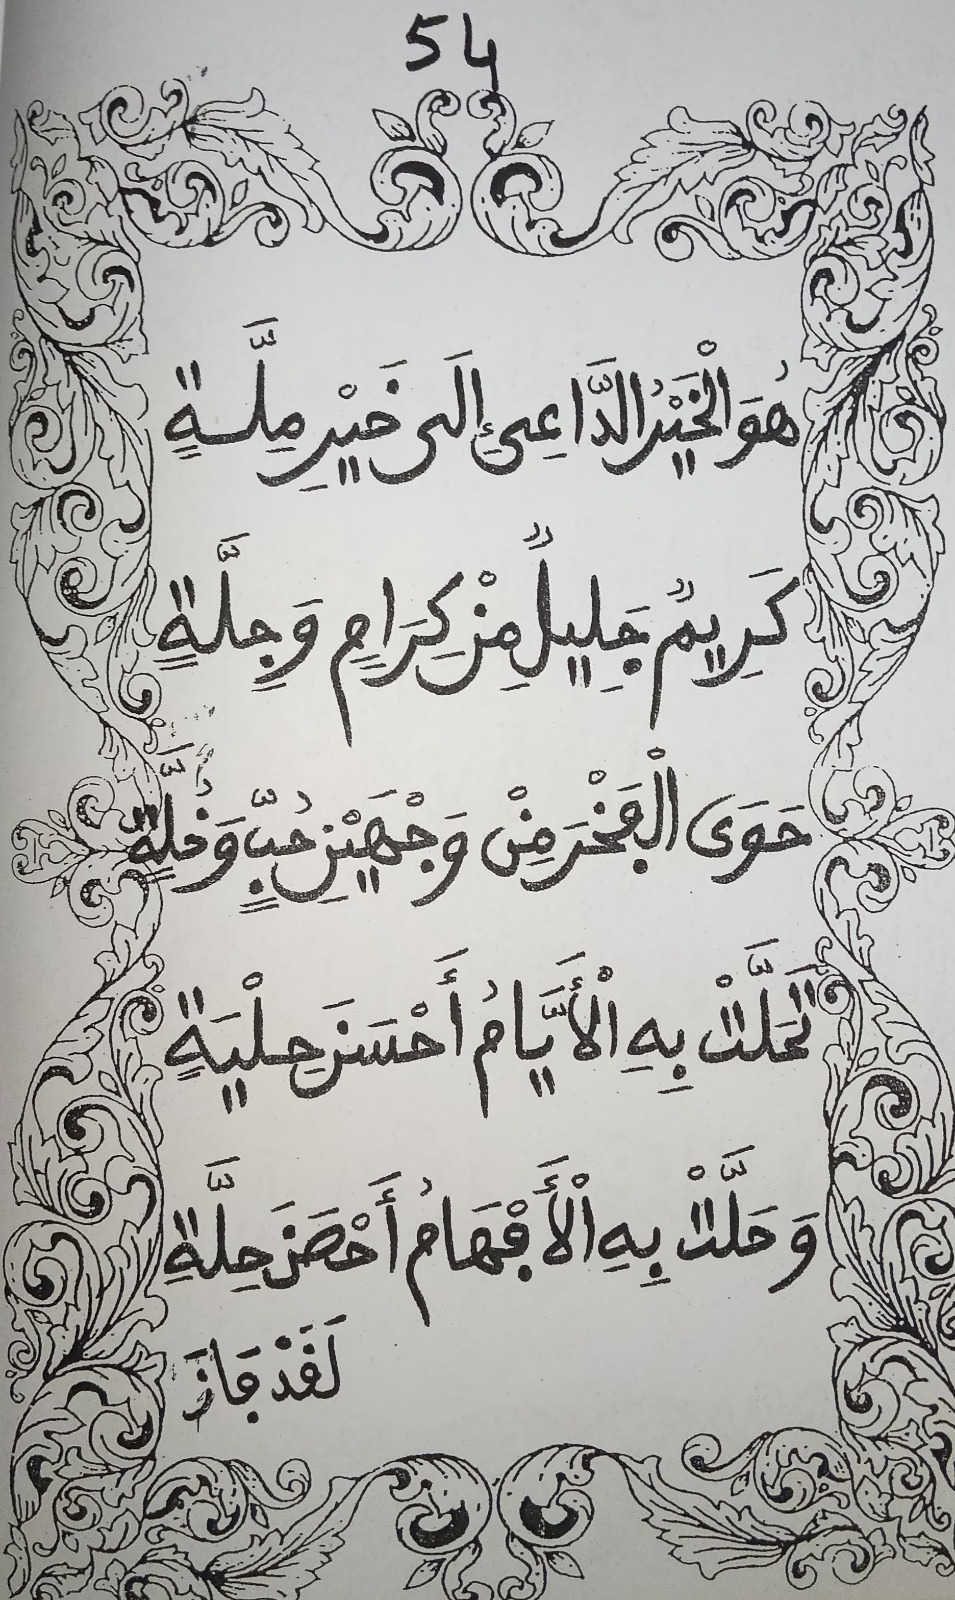 54
هُوَ الْخَيْرُ الدَّاعِىِٕ إِلَى خَيْرِ مِلَّةٍ
كَرِيمٌ جَلِيلٌ مِنْ كِرَامٍ وَجِلَّةٍ
حَوَى الْفَخْرَ مِنْ وَجْهَيْنِ حُبٍّ وَخُلَّةٍ
تَحَلَّتْ بِهِ الْأَيَّامُ أَحْسَنَ حِلْيَةٍ
وَحَلَّتْ بِهِ الْأَفْهَامُ أَحْصَنَ حِلَّةِ
لَقَدْ فَازَ